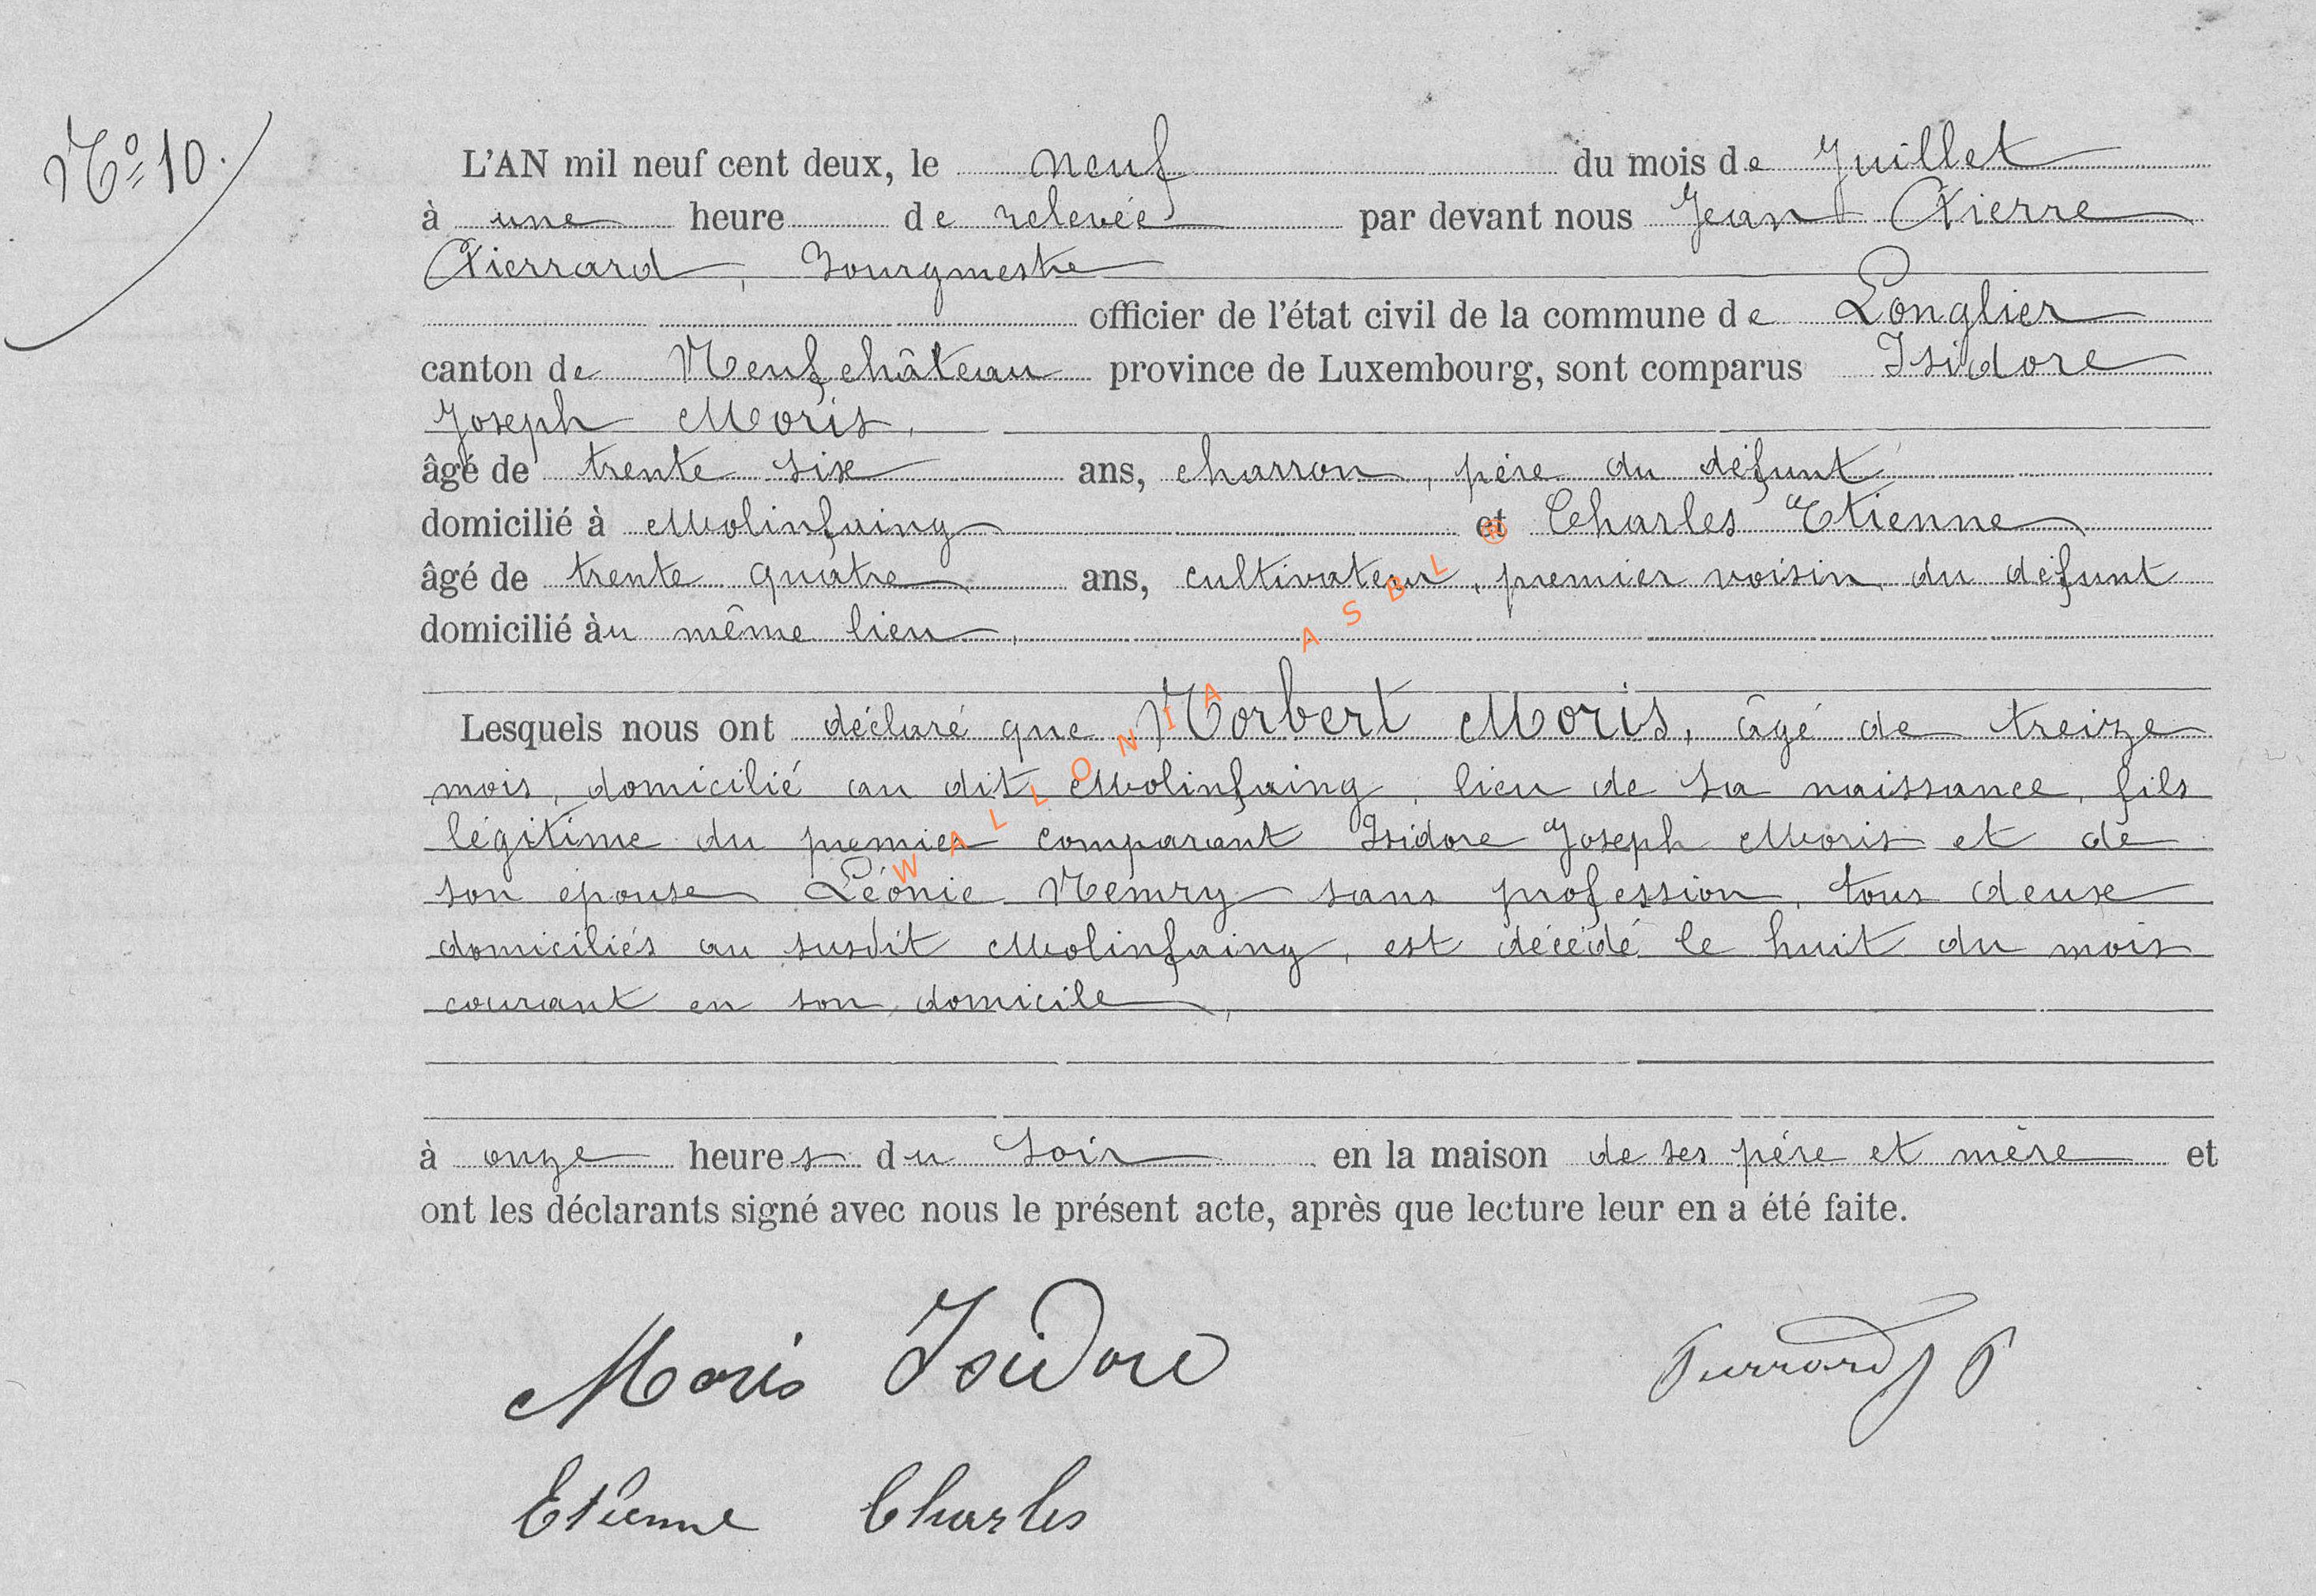 N° 10.
L'AN mil neuf cent deux, le neuf du mois de Juillet
à une heure de relevée par devant nous Jean Pierre
Pierrard, Bourgmestre
officier de l'état civil de la commune de Longlier
canton de Neufchâteau province de Luxembourg, sont comparus Isidore
Joseph Moris,
âgé de trente six ans, charron, père du défunt
domicilié à Molinfaing et Charles Etienne
âgé de trente quatre ans, cultivateur, premier voisin du défunt
domicilié àu même lieu,
Lesquels nous ont déclaré que Norbert Moris, âgé de treize
mois, domicilié au dit Molinfaing, lieu de sa naissance, fils
légitime du premier comparant Isidore Joseph Moris et de
son épouse Léonie Nemry sans profession, tous deux
domiciliés au susdit Molinfaing, est décédé le huit du mois
courant en son domicile,
à onze heures du soir en la maison de ses père et mère et
ont les déclarants signé avec nous le présent acte, après que lecture leur en a été faite.
Moris Isidore
Pierrard J P
Etienne Charles
WALLONIA ASBL ®